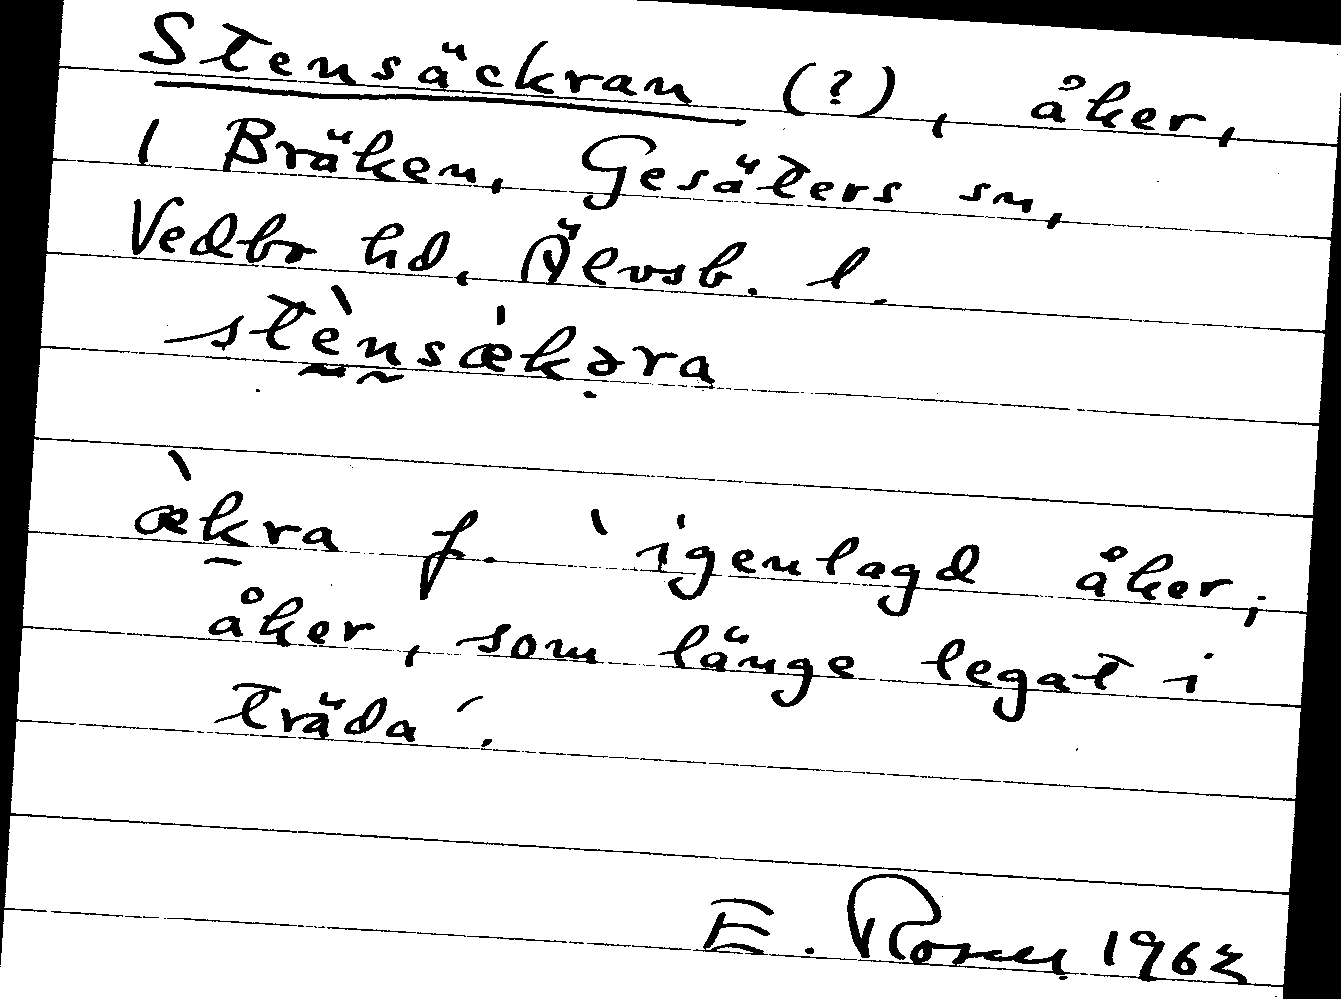 Stensäckran (?), åker,
1 Bräken, Gesäters sn,
Vedbo hd, Älvsb. l.
stènsǽkəra
æ̀kra f. `igenlagd åker;
åker, som länge legat i
träda´.
E. Rosell 1963